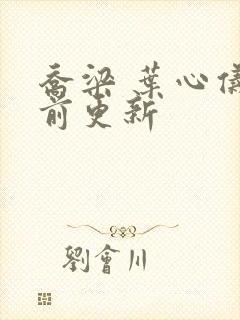 喬梁 葉心儀
前更新
劉會川